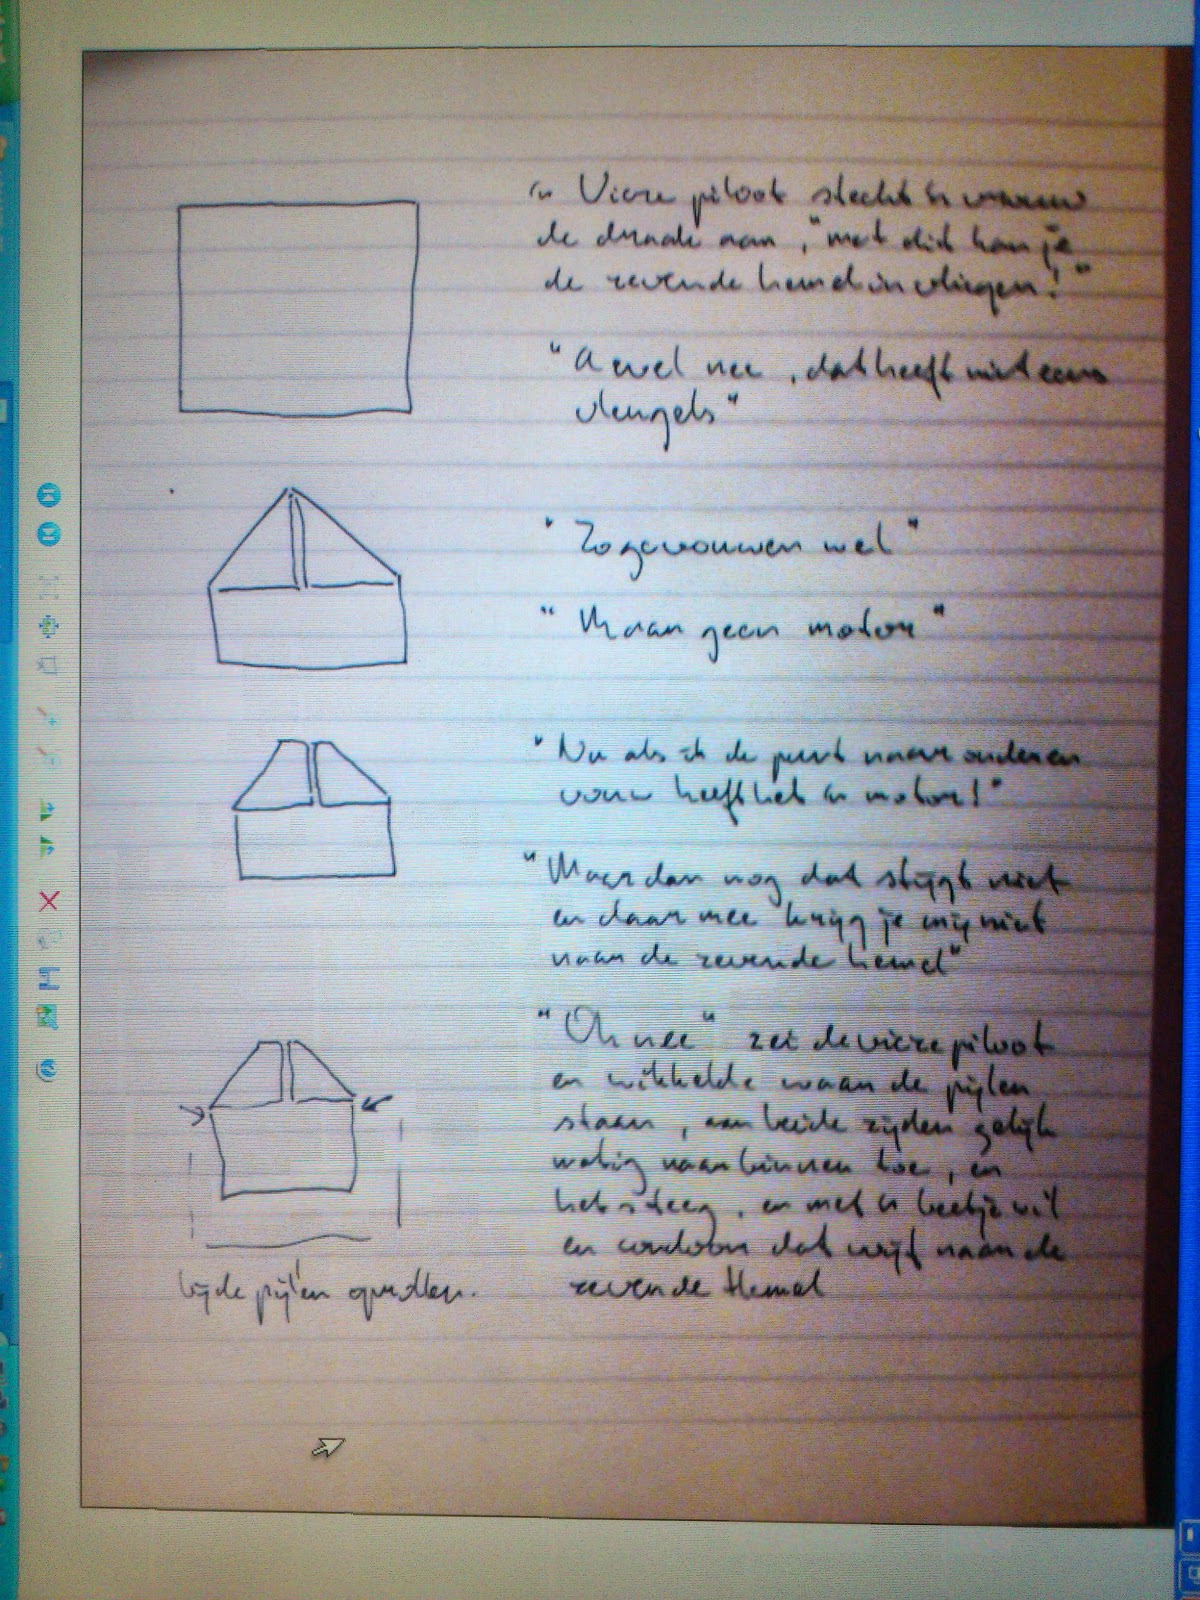 'n Vieze piloot steekt 'n vrouw
de draak aan, "met dit kan je
de zevende hemel in vliegen!"
"Awel nee, dat heeft niet eens
vleugels"
"Zo gevouwen wel"
"Maar geen motor"
"Nu als ik de punt naar onderen
vouw heeft het 'n motor!"
"Maar dan nog dat stijgt niet
en daar mee krijg je mij niet
naar de zevende hemel"
"Oh nee" zei de vieze piloot
en wikkelde waar de pijlen
staan, aan beide zijden gelijk
matig naar binnen toe, en
het steeg, en met 'n beetje wil
en condoom dat wijf naar de
zevende Hemel
bij de pijlen